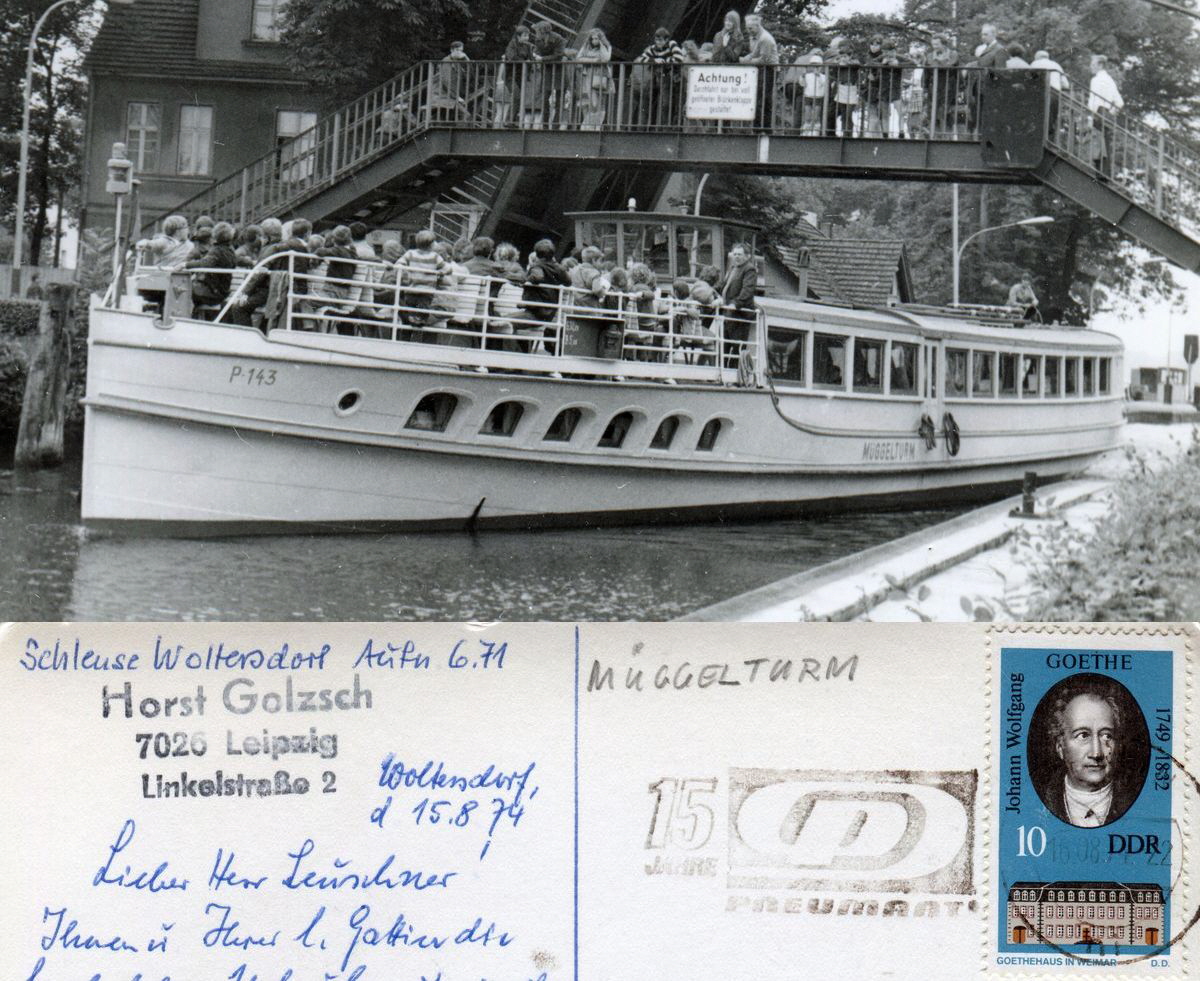 Achtung!
Durchfahrt nur bei voll
geöffneter Brückenklappe
gestattet
P-143
MÜGGELTURM
Schleuse Woltersdorf Aufn 6.71
Horst Golzsch
7026 Leipzig
Linkelstraße 2
Woltersdorf,
d 15.8.74
Lieber Herr Leuschner!
Ihnen u Ihrer l. Gattin die
MÜGGELTURM
15
JAHRE
PNEUMANT
GOETHE
Johann Wolfgang
1749-1832
10 DDR
16.08.7 22
GOETHEHAUS IN WEIMAR D.D.